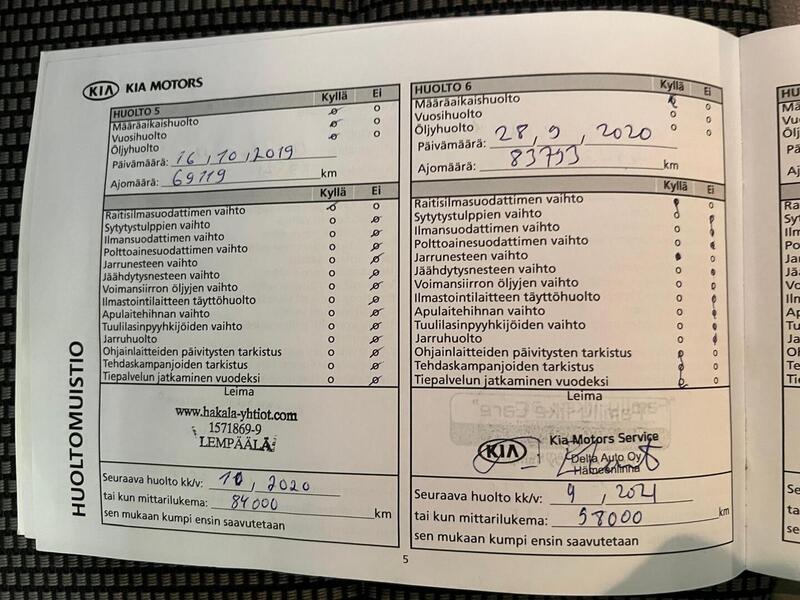 KIA KIA MOTORS
HUOLTO 5 Kyllä Ei
Määräaikaishuolto
Vuosihuolto
Öljyhuolto
Päivämäärä: 16, 10, 2019
Ajomäärä: 69119 km
Kyllä Ei
Raitisilmasuodattimen vaihto
Sytytystulppien vaihto
Ilmansuodattimen vaihto
Polttoainesuodattimen vaihto
Jarrunesteen vaihto
Jäähdytysnesteen vaihto
Voimansiirron öljyjen vaihto
Ilmastointilaitteen täyttöhuolto
Apulaitehihnan vaihto
Tuulilasinpyyhkijöiden vaihto
Jarruhuolto
Ohjainlaitteiden päivitysten tarkistus
Tehdaskampanjoiden tarkistus
Tiepalvelun jatkaminen vuodeksi
Leima
www.hakala-yhtiot.com
1571869-9
LEMPÄÄLÄ
Seuraava huolto kk/v: 10, 2020
tai kun mittarilukema: 84000 km
sen mukaan kumpi ensin saavutetaan
HUOLTOMUISTIO
HUOLTO 6 Kyllä Ei
Määräaikaishuolto
Vuosihuolto
Öljyhuolto
Päivämäärä: 28, 9, 2020
Ajomäärä: 83793 km
Kyllä Ei
Raitisilmasuodattimen vaihto
Sytytystulppien vaihto
Ilmansuodattimen vaihto
Polttoainesuodattimen vaihto
Jarrunesteen vaihto
Jäähdytysnesteen vaihto
Voimansiirron öljyjen vaihto
Ilmastointilaitteen täyttöhuolto
Apulaitehihnan vaihto
Tuulilasinpyyhkijöiden vaihto
Jarruhuolto
Ohjainlaitteiden päivitysten tarkistus
Tehdaskampanjoiden tarkistus
Tiepalvelun jatkaminen vuodeksi
Leima
KIA Kia Motors Service
Delta Auto Oy
Hämeenlinna
Seuraava huolto kk/v: 9, 2021
tai kun mittarilukema: 98000 km
sen mukaan kumpi ensin saavutetaan
5